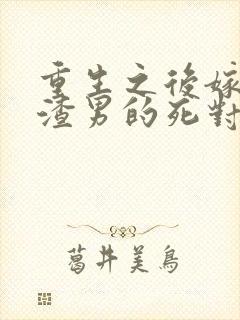 重生之後嫁
渣男的死對
葛井美鳥